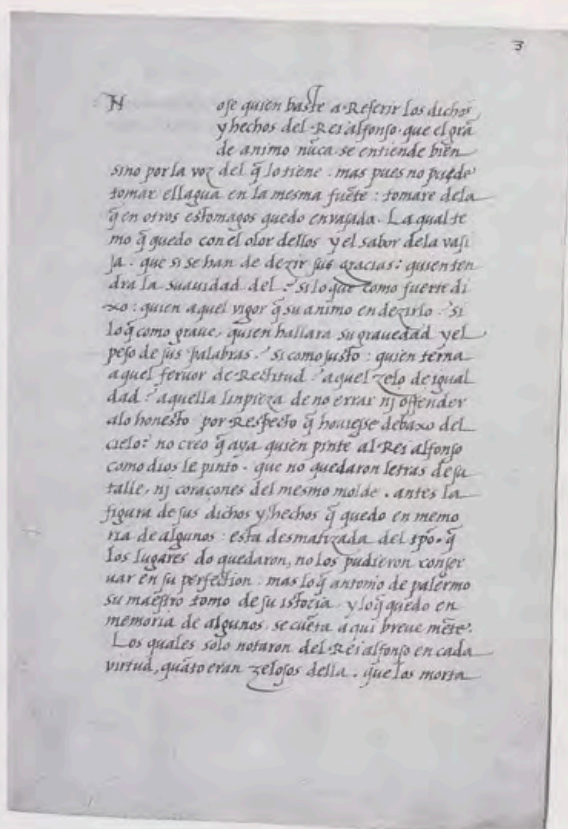 3
N ose quien baste a Referir los dichos
y hechos del Rei alfonso que el grā
de animo nūca se entiende bien
sino por la voz del q̄ lo tiene . mas pues no puede
tomar ellagua en la mesma fuēte : tomare dela
q̄ en otros estomagos quedo envasada . La qual te
mo q̄ quedo con el olor dellos y el sabor dela vasi
ja . que si se han de dezir sus gracias : quien ten
dra la suavidad del ? si lo que como fuerte di
xo : quien aquel vigor q̄ su animo en dezirlo ? si
lo q̄ como graue, quien hallara su grauedad y el
peso de sus palabras ? si como justo : quien terna
aquel feruor de Rectitud ? aquel zelo de igual
dad ? aquella linpieza de no errar nj offender
alo honesto por Respecto q̄ houiesse debaxo del
cielo ? no creo q̄ aya quien pinte al Rei alfonso
como dios le pinto . que no quedaron letras de su
talle, nj coraçones del mesmo molde . antes la
figura de sus dichos y hechos q̄ quedo en memo
ria de algunos : esta desmatizada del tp̄o . q̄
los lugares do quedaron, no los pudieron conser
uar en su perfection : mas lo q̄ antonio de palermo
su maestro tomo de su istoria y lo q̄ quedo en
memoria de algunos se cuēta aqui breue mēte .
Los quales solo notaron del Rei alfonso en cada
virtud, quāto eran zelosos della . que los morta